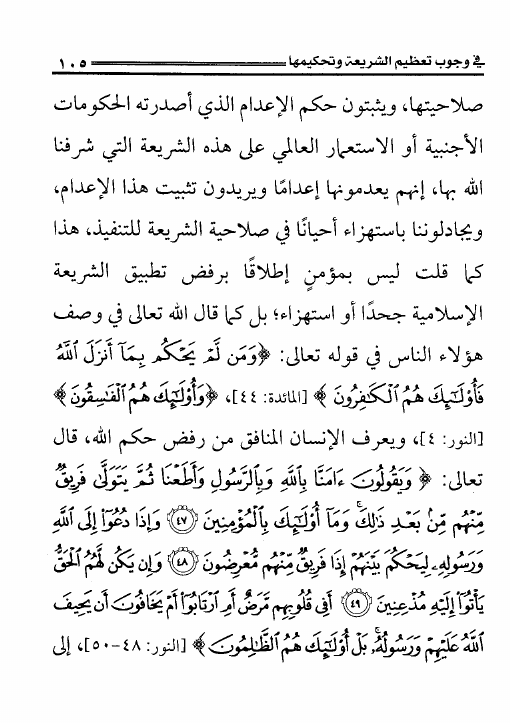 في وجوب تعظيم الشريعة وتحكيمها ١٠٥
صلاحيتها، ويثبتون حكم الإعدام الذي أصدرته الحكومات
الأجنبية أو الاستعمار العالمي على هذه الشريعة التي شرفنا
الله بها، إنهم يعدمونها إعدامًا ويريدون تثبيت هذا الإعدام،
ويجادلوننا باستهزاء أحيانًا في صلاحية الشريعة للتنفيذ، هذا
كما قلت ليس بمؤمنٍ إطلاقًا برفض تطبيق الشريعة
الإسلامية جحدًا أو استهزاء؛ بل كما قال الله تعالى في وصف
هؤلاء الناس في قوله تعالى: ﴿وَمَن لَّمْ يَحْكُم بِمَا أَنزَلَ اللَّهُ
فَأُوْلَٰئِكَ هُمُ الْكَافِرُونَ﴾ [المائدة: ٤٤]، ﴿وَأُوْلَٰئِكَ هُمُ الْفَاسِقُونَ﴾
[النور: ٤]، ويعرف الإنسان المنافق من رفض حكم الله، قال
تعالى: ﴿وَيَقُولُونَ ءَامَنَّا بِاللَّهِ وَبِالرَّسُولِ وَأَطَعْنَا ثُمَّ يَتَوَلَّىٰ فَرِيقٌ
مِّنْهُم مِّنۢ بَعْدِ ذَٰلِكَ ۚ وَمَا أُوْلَٰئِكَ بِالْمُؤْمِنِينَ ٤٧ وَإِذَا دُعُوٓا۟ إِلَى اللَّهِ
وَرَسُولِهِ لِيَحْكُمَ بَيْنَهُمْ إِذَا فَرِيقٌ مِّنْهُم مُّعْرِضُونَ ٤٨ وَإِن يَكُن لَّهُمُ الْحَقُّ
يَأْتُوٓا۟ إِلَيْهِ مُذْعِنِينَ ٤٩ أَفِي قُلُوبِهِم مَّرَضٌ أَمِ ارْتَابُوٓا۟ أَمْ يَخَافُونَ أَن يَحِيفَ
اللَّهُ عَلَيْهِمْ وَرَسُولُهُ ۚ بَلْ أُوْلَٰئِكَ هُمُ الظَّالِمُونَ﴾ [النور: ٤٨-٥٠]، إلى